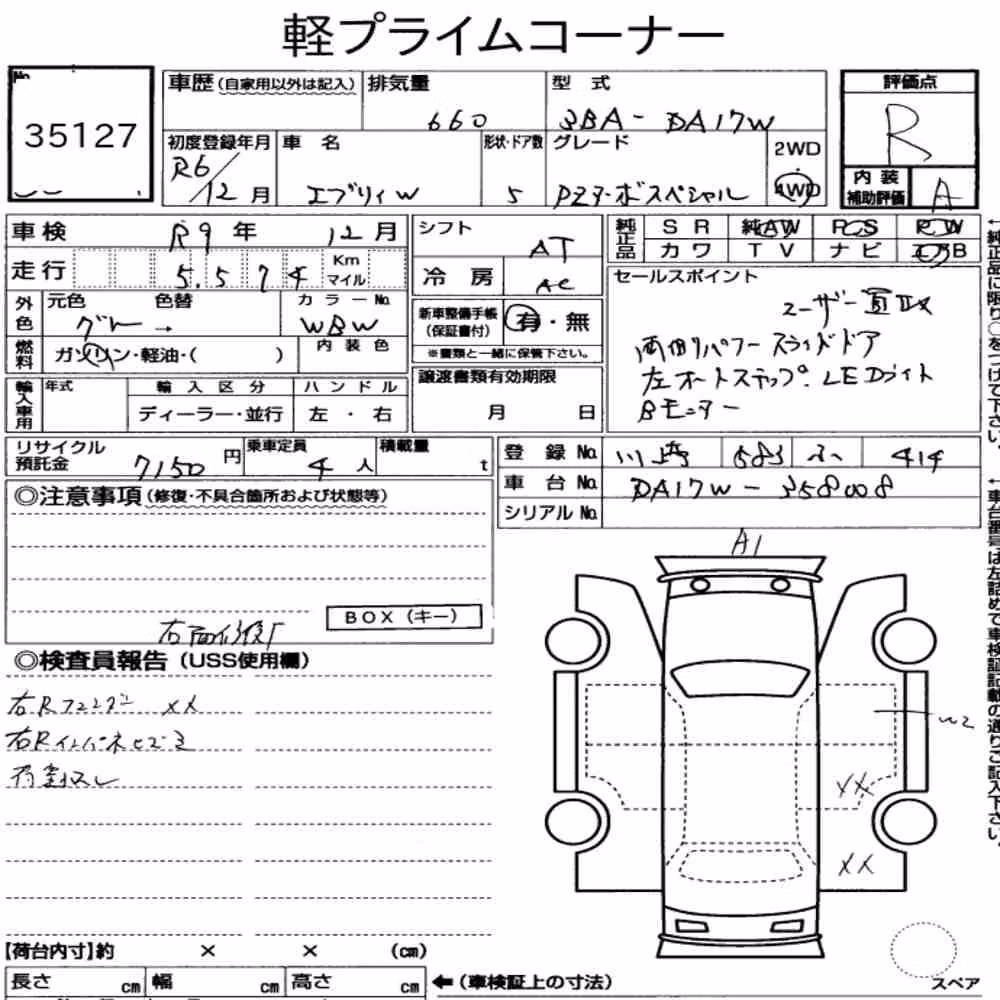 軽プライムコーナー
No.
35127
車歴(自家用以外は記入)
排気量 660
型式 3BA-DA17W
評価点 R
内装補助評価 A
初度登録年月 R6/12月
車名 エブリィW
形状・ドア数 5
グレード PZターボスペシャル
2WD・4WD
車検 R9年 12月
シフト AT
純正品 SR 純AW PS PW
カワ TV ナビ エアB
走行 5.574 Km マイル
冷房 AC
セールスポイント
ユーザー買取
両側パワースライドドア
左オートステップ. LEDライト
Bモニター
外色 元色 グレー→ 色替 カラーNo. WBW
新車整備手帳(保証書付) 有・無
※書類と一緒に保管下さい。
燃料 ガソリン・軽油・( ) 内装色
輸入車用 年式 輸入区分 ハンドル
ディーラー・並行 左・右
譲渡書類有効期限
月 日
リサイクル預託金 7150円
乗車定員 4人
積載量 t
登録No. 川崎 583 414
車台No. DA17W-358008
シリアルNo.
◎注意事項(修復・不具合箇所および状態等)
BOX(キー)
右面修復
◎検査員報告(USS使用欄)
右Rフェンダー XX
右Rインパネヒズミ
A1
W2
XX
XX
【荷台内寸】約 × × (cm)
長さ cm 幅 cm 高さ cm
←(車検証上の寸法)
スペア
←純正品に限り○をつけて下さい。
←車台番号は左詰めで車検証記載の通りご記入下さい。